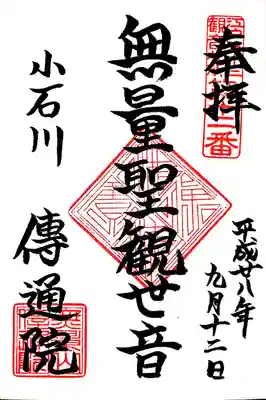 奉拝
平成廿八年
九月十二日
無量聖観世音
小石川
傳通院